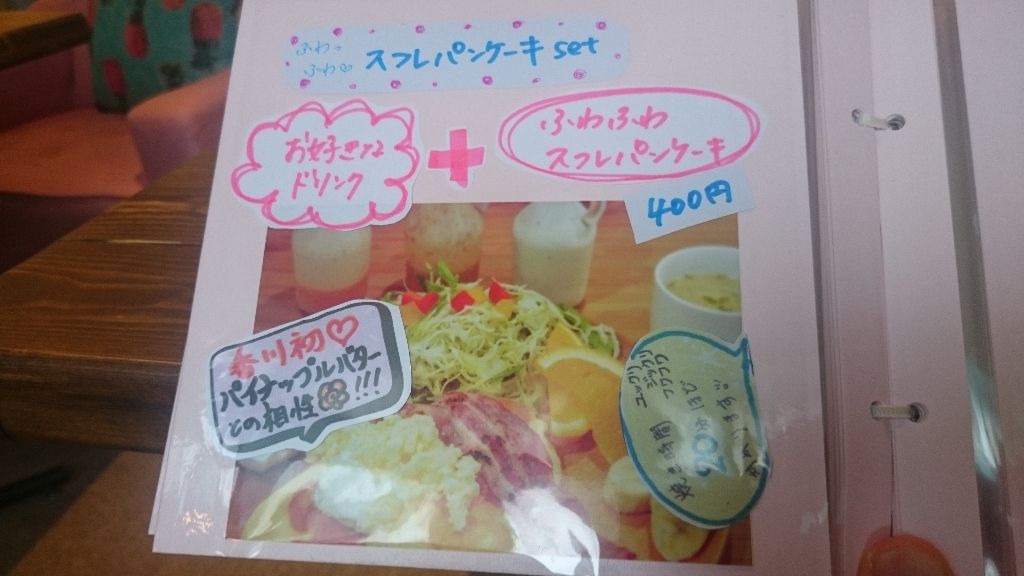 ふわっ
ふわ♡ スフレパンケーキ set
お好きな
ドリンク
+
ふわふわ
スフレパンケーキ
400円
香川初♡
パイナップルバター
との相性◎!!!
ユックリ
ジックリ
フワフワ
焼き時間
20分ほど